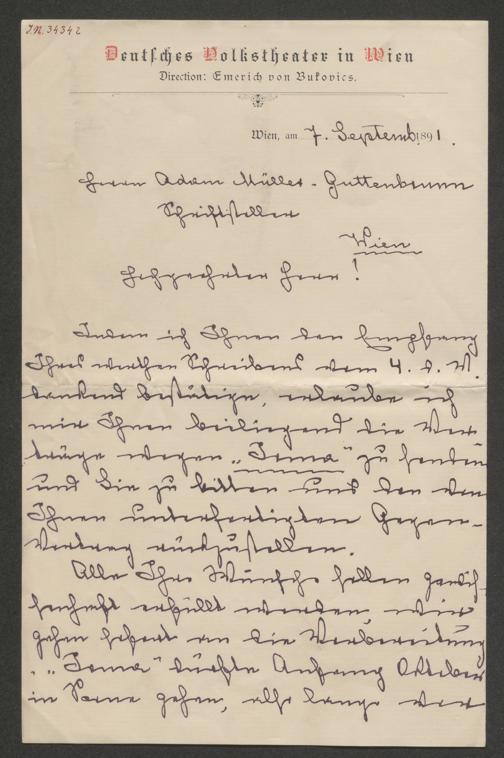 I.N. 34342
Deutsches Volkstheater in Wien
Direction: Emerich von Bukovics.
Wien, am 7. Septemb. 1891.
Herrn Adam Müller-Guttenbrunn
Schriftsteller
Wien
Hochgeehrter Herr!
Indem ich Ihnen den Empfang
Ihres werthen Schreibens vom 4. d. M.
dankend bestätige, erlaube ich
mir Ihnen beiliegend die Ver
träge wegen „Irma" zu senden
und Sie zu bitten uns den von
Ihnen unterfertigten Gegen-
Vertrag rückzustellen.
Alle Ihre Wünsche sollen gewis-
senhaft erfüllt werden wir
gehen sofort an die Vorbereitung
„Irma" dürfte Anfang Oktober
in Scene gehen, also lange vor